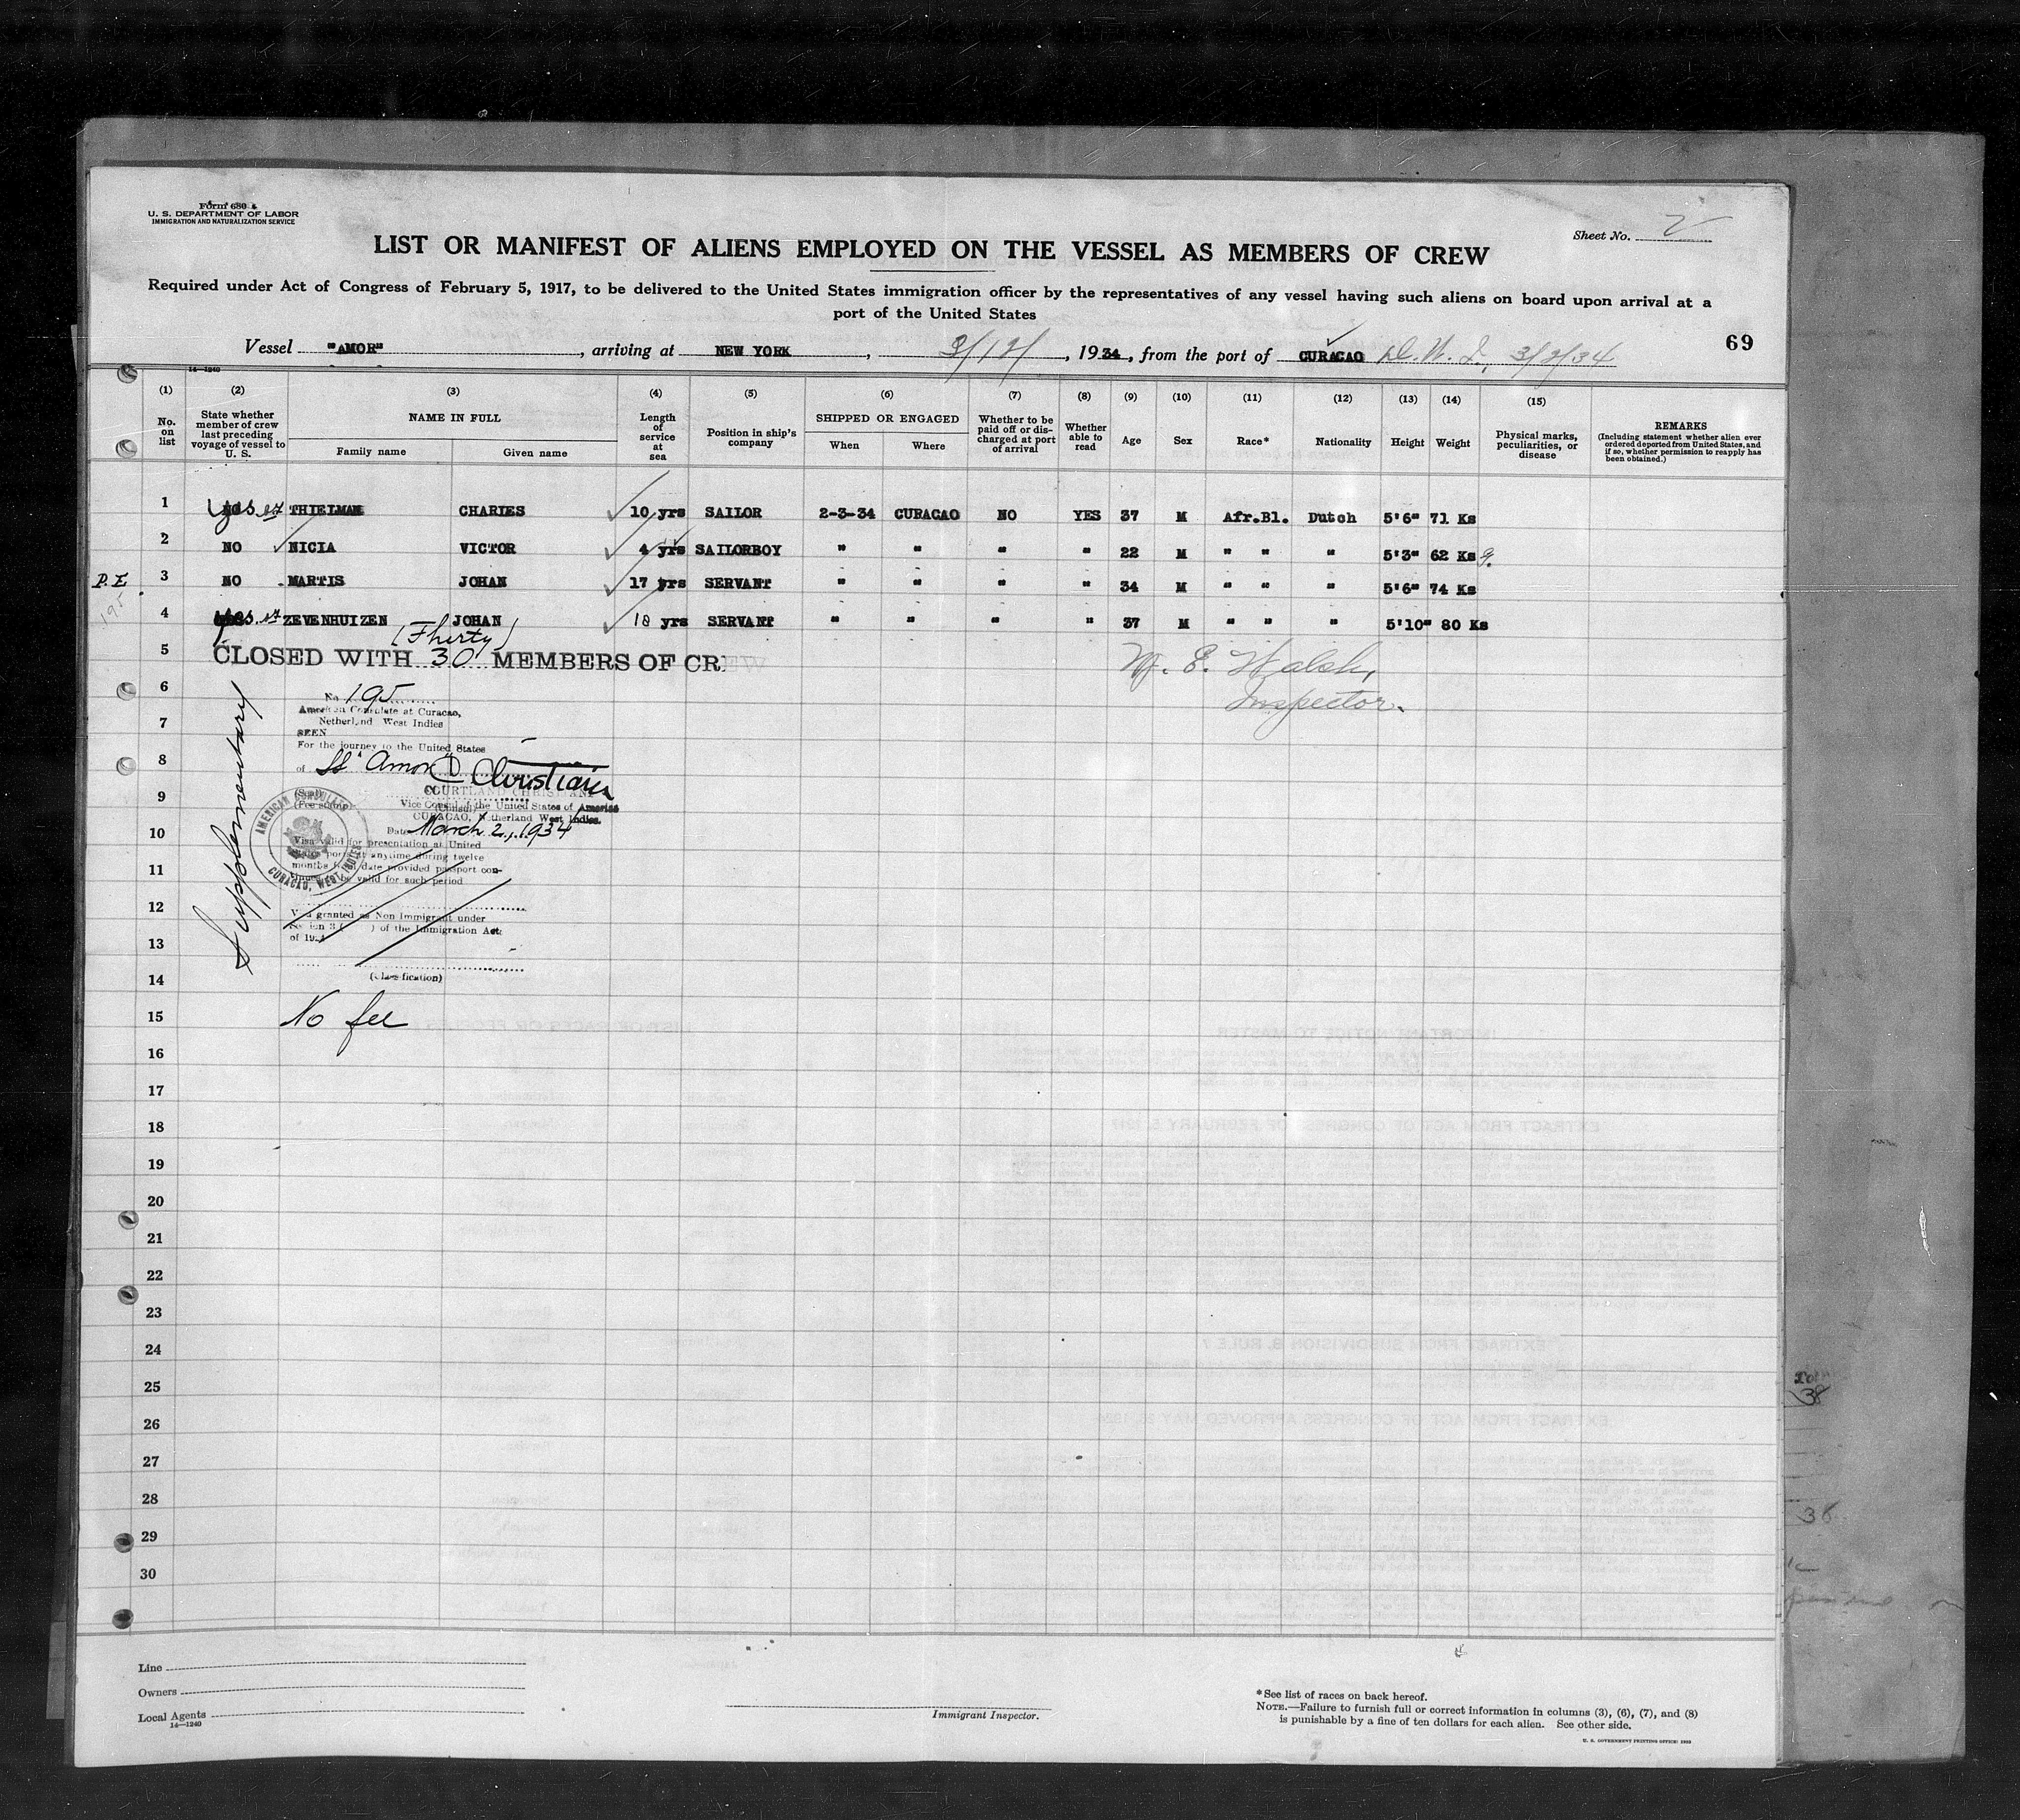 Form 680
U. S. DEPARTMENT OF LABOR
IMMIGRATION AND NATURALIZATION SERVICE
Sheet No. 2
LIST OR MANIFEST OF ALIENS EMPLOYED ON THE VESSEL AS MEMBERS OF CREW
Required under Act of Congress of February 5, 1917, to be delivered to the United States immigration officer by the representatives of any vessel having such aliens on board upon arrival at a
port of the United States
Vessel "AMOR", arriving at NEW YORK, 3/12/, 1934, from the port of CURACAO D.W.I., 3/2/34
69
14—1240
(1) (2) (3) (4) (5) (6) (7) (8) (9) (10) (11) (12) (13) (14) (15)
No. on list
State whether member of crew last preceding voyage of vessel to U. S.
NAME IN FULL
Family name
Given name
Length of service at sea
Position in ship's company
SHIPPED OR ENGAGED
When
Where
Whether to be paid off or discharged at port of arrival
Whether able to read
Age
Sex
Race*
Nationality
Height
Weight
Physical marks, peculiarities, or disease
REMARKS
(Including statement whether alien ever ordered deported from United States, and if so, whether permission to reapply has been obtained.)
1 yes THIELMAN CHARLES 10 yrs SAILOR 2-3-34 CURACAO NO YES 37 M Afr.Bl. Dutch 5'6" 71 Ks
2 NO NICIA VICTOR 4 yrs SAILORBOY " " " " 22 M " " " 5'3" 62 Ks
P.E. 3 NO MARTIS JOHAN 17 yrs SERVANT " " " " 34 M " " " 5'6" 74 Ks
195
4 yes ZEVENHUIZEN JOHAN 18 yrs SERVANT " " " " 37 M " " " 5'10" 80 Ks
(Thirty)
5 CLOSED WITH 30 MEMBERS OF CREW
W. E. Walsh,
Inspector.
6
No 195
American Consulate at Curacao,
7
Netherland West Indies
SEEN
For the journey to the United States
8
of SS "Amor"
Christian
9
(Seal)
(Fee stamp)
COURTLAND CHRISTIANI
Vice Consul of the United States of America
(Consul)
CURACAO, Netherland West Indies.
10
Date March 2, 1934
AMERICAN CONSULATE
CURACAO, WEST INDIES
Supplementary
Visa valid for presentation at United
States ports at anytime during twelve
11
months from date provided passport con-
tinues to be valid for such period
12
Visa granted as Non Immigrant under
Section 3 ( ) of the Immigration Act
13
of 1924
14
(Classification)
15
No fee
16
17
18
19
20
21
22
23
24
25
26
27
28
29
30
38
38
Line
Owners
Local Agents
14—1240
Immigrant Inspector.
*See list of races on back hereof.
NOTE.—Failure to furnish full or correct information in columns (3), (6), (7), and (8)
is punishable by a fine of ten dollars for each alien. See other side.
U. S. GOVERNMENT PRINTING OFFICE: 1933